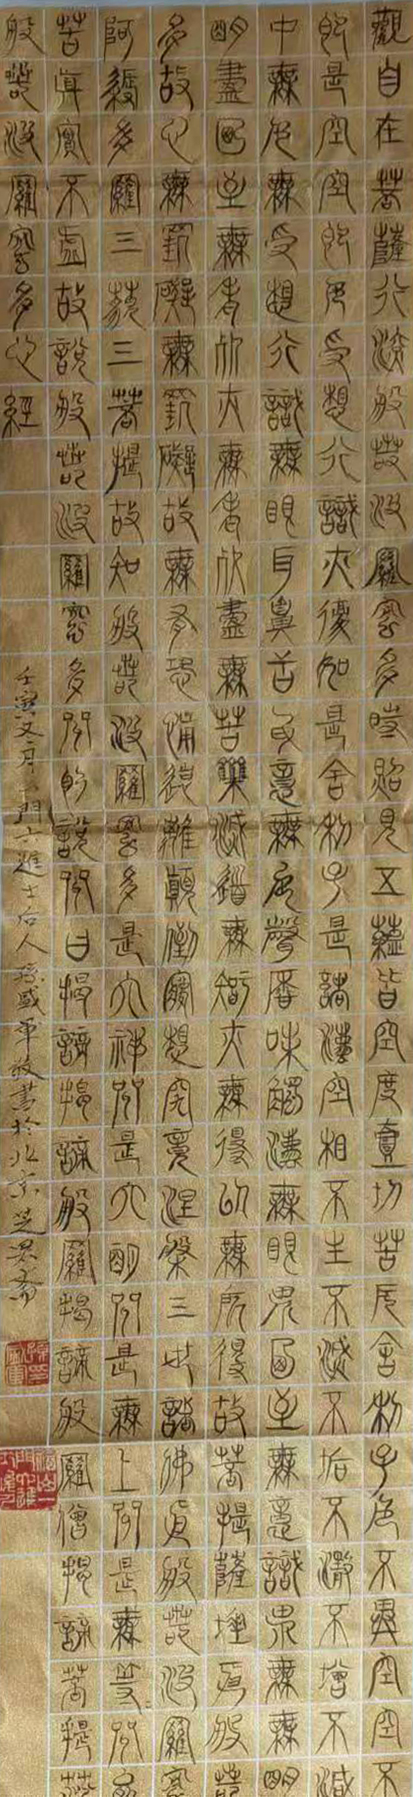 觀自在菩薩行深般若波羅蜜多時照見五蘊皆空度壹切苦厄舍利子色不異空空不
即是空空即色受想行識亦復如是舍利子是諸法空相不生不滅不垢不淨不增不減
中無色無受想行識無眼耳鼻舌身意無色聲香味觸法無眼界迺至無意識界無無明
明盡迺至無老死亦無老死盡無苦集滅道無智亦無得以無所得故菩提薩埵依般若
多故心無罣礙無罣礙故無有恐怖遠離顛倒夢想究竟涅槃三世諸佛依般若波羅蜜
阿耨多羅三藐三菩提故知般若波羅蜜多是大神咒是大明咒是無上咒是無等咒能
苦真實不虛故說般若波羅蜜多咒即說咒曰揭諦揭諦般羅揭諦般羅僧揭諦菩提薩
般若波羅蜜多心經
壬寅文月一門六進士后人孫盛軍敬書於北京芝齋